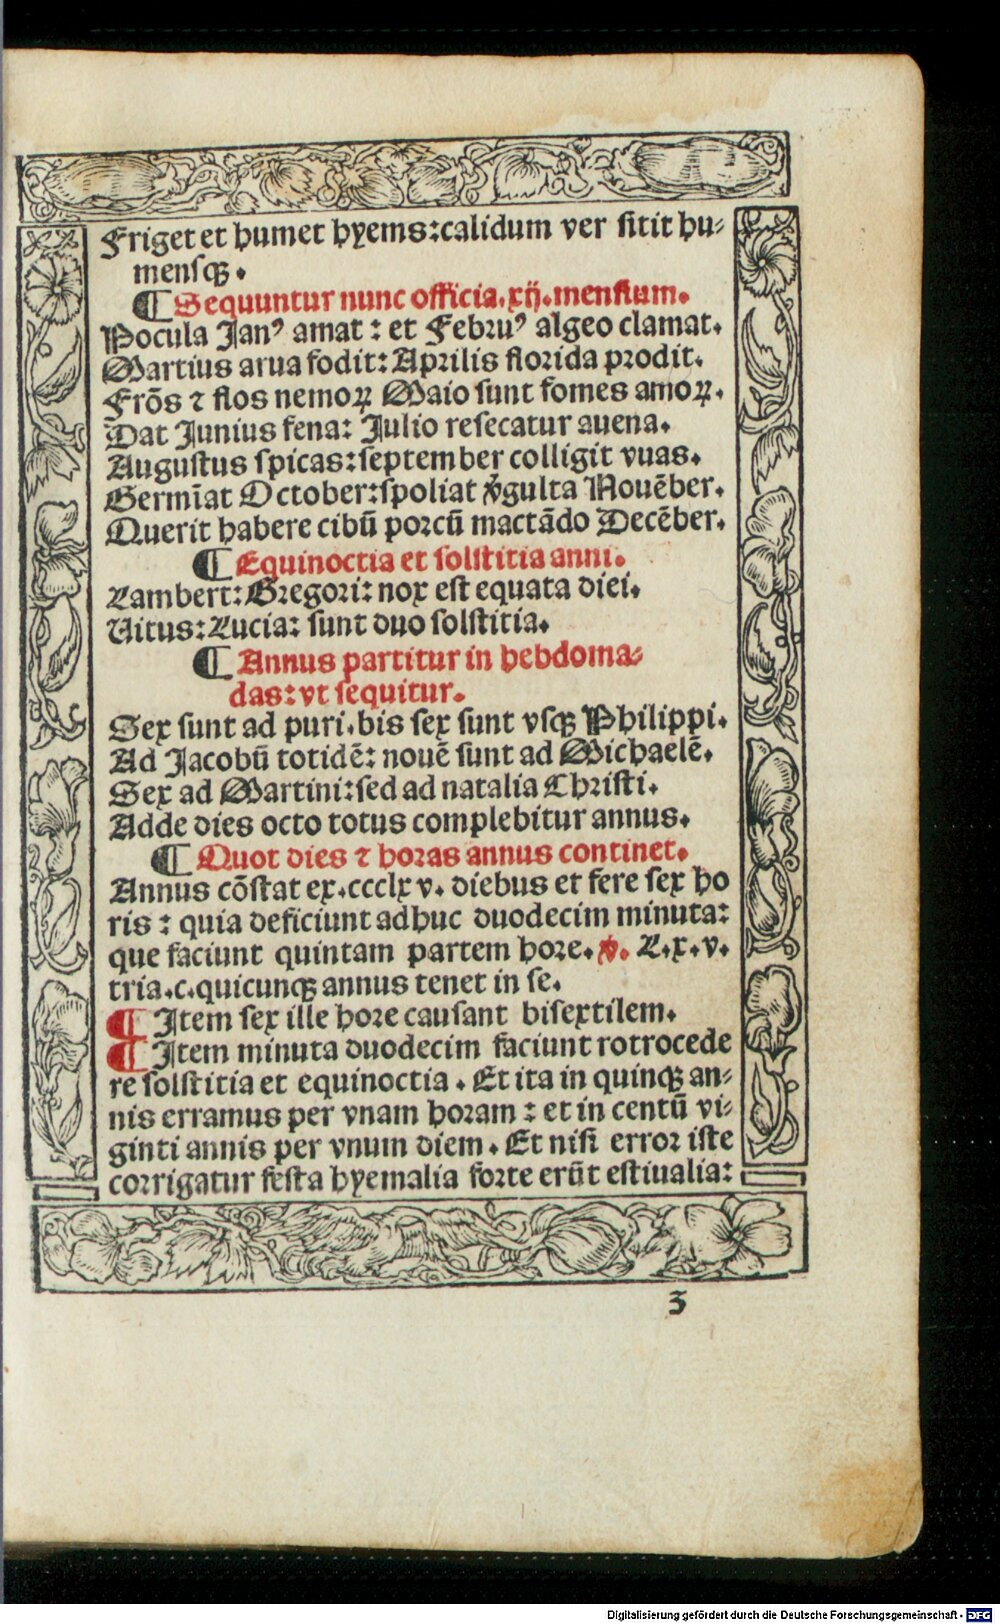 Friget et humet hyems:calidum ver sitit hu-
mensqꝫ.
¶ Sequuntur nunc officia.xij.mensium.
Pocula Janꝰ amat : et Februꝰ algeo clamat.
Martius arua fodit: Aprilis florida prodit.
Frōs ⁊ flos nemoꝝ Maio sunt fomes amoꝝ.
Dat Junius fena: Julio resecatur auena.
Augustus spicas:september colligit vuas.
Germīat October:spoliat v̄gulta Nouēber.
Querit habere cibū porcū mactādo Decēber.
¶ Equinoctia et solstitia anni.
Lambert: Gregori: nox est equata diei.
Uitus: Lucia: sunt duo solstitia.
¶ Annus partitur in hebdoma-
das: vt sequitur.
Sex sunt ad puri.bis sex sunt vsqꝫ Philippi.
Ad Jacobū totidē: nouē sunt ad Michaelē.
Sex ad Martini:sed ad natalia Christi.
Adde dies octo totus complebitur annus.
¶ Quot dies ⁊ horas annus continet.
Annus cōstat ex.ccclxv. diebus et fere sex ho
ris : quia deficiunt adhuc duodecim minuta:
que faciunt quintam partem hore. ℣. L.x.v.
tria.c.quicunqꝫ annus tenet in se.
¶ Item sex ille hore causant bisextilem.
¶ Item minuta duodecim faciunt rotrocede
re solstitia et equinoctia . Et ita in quinqꝫ an-
nis erramus per vnam horam : et in centū vi-
ginti annis per vnum diem . Et nisi error iste
corrigatur festa hyemalia forte erūt estiualia:
3
Digitalisierung gefördert durch die Deutsche Forschungsgemeinschaft - DFG